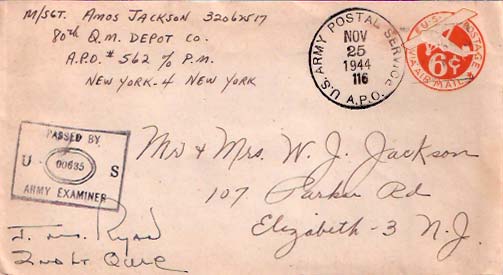 M/SGT. AMOS JACKSON 32062517
80th Q.M. DEPOT CO.
A.P.O. # 562 c/o P.M.
NEW YORK-4 NEW YORK
U.S. ARMY POSTAL SERVICE
NOV
25
1944
116
A.P.O.
U.S. POSTAGE
6¢
VIA AIR MAIL
PASSED BY
U. 00635 S
ARMY EXAMINER
Mr & Mrs. W. J. Jackson
107 Parker Rd
Elizabeth-3 N.J.
2nd Lt QMC